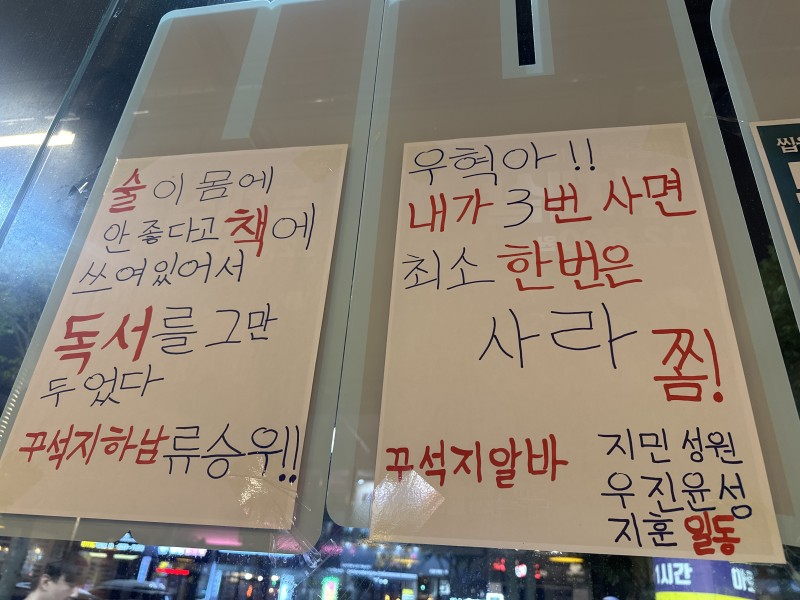 술이 몸에
안 좋다고 책에
쓰여있어서
독서를 그만
두었다
꾸석지하남 류승우!!
우혁아!!
내가 3번 사면
최소 한번은
사라
쫌!
꾸석지알바
지민 성원
우진 윤성
지훈 일동
1시간